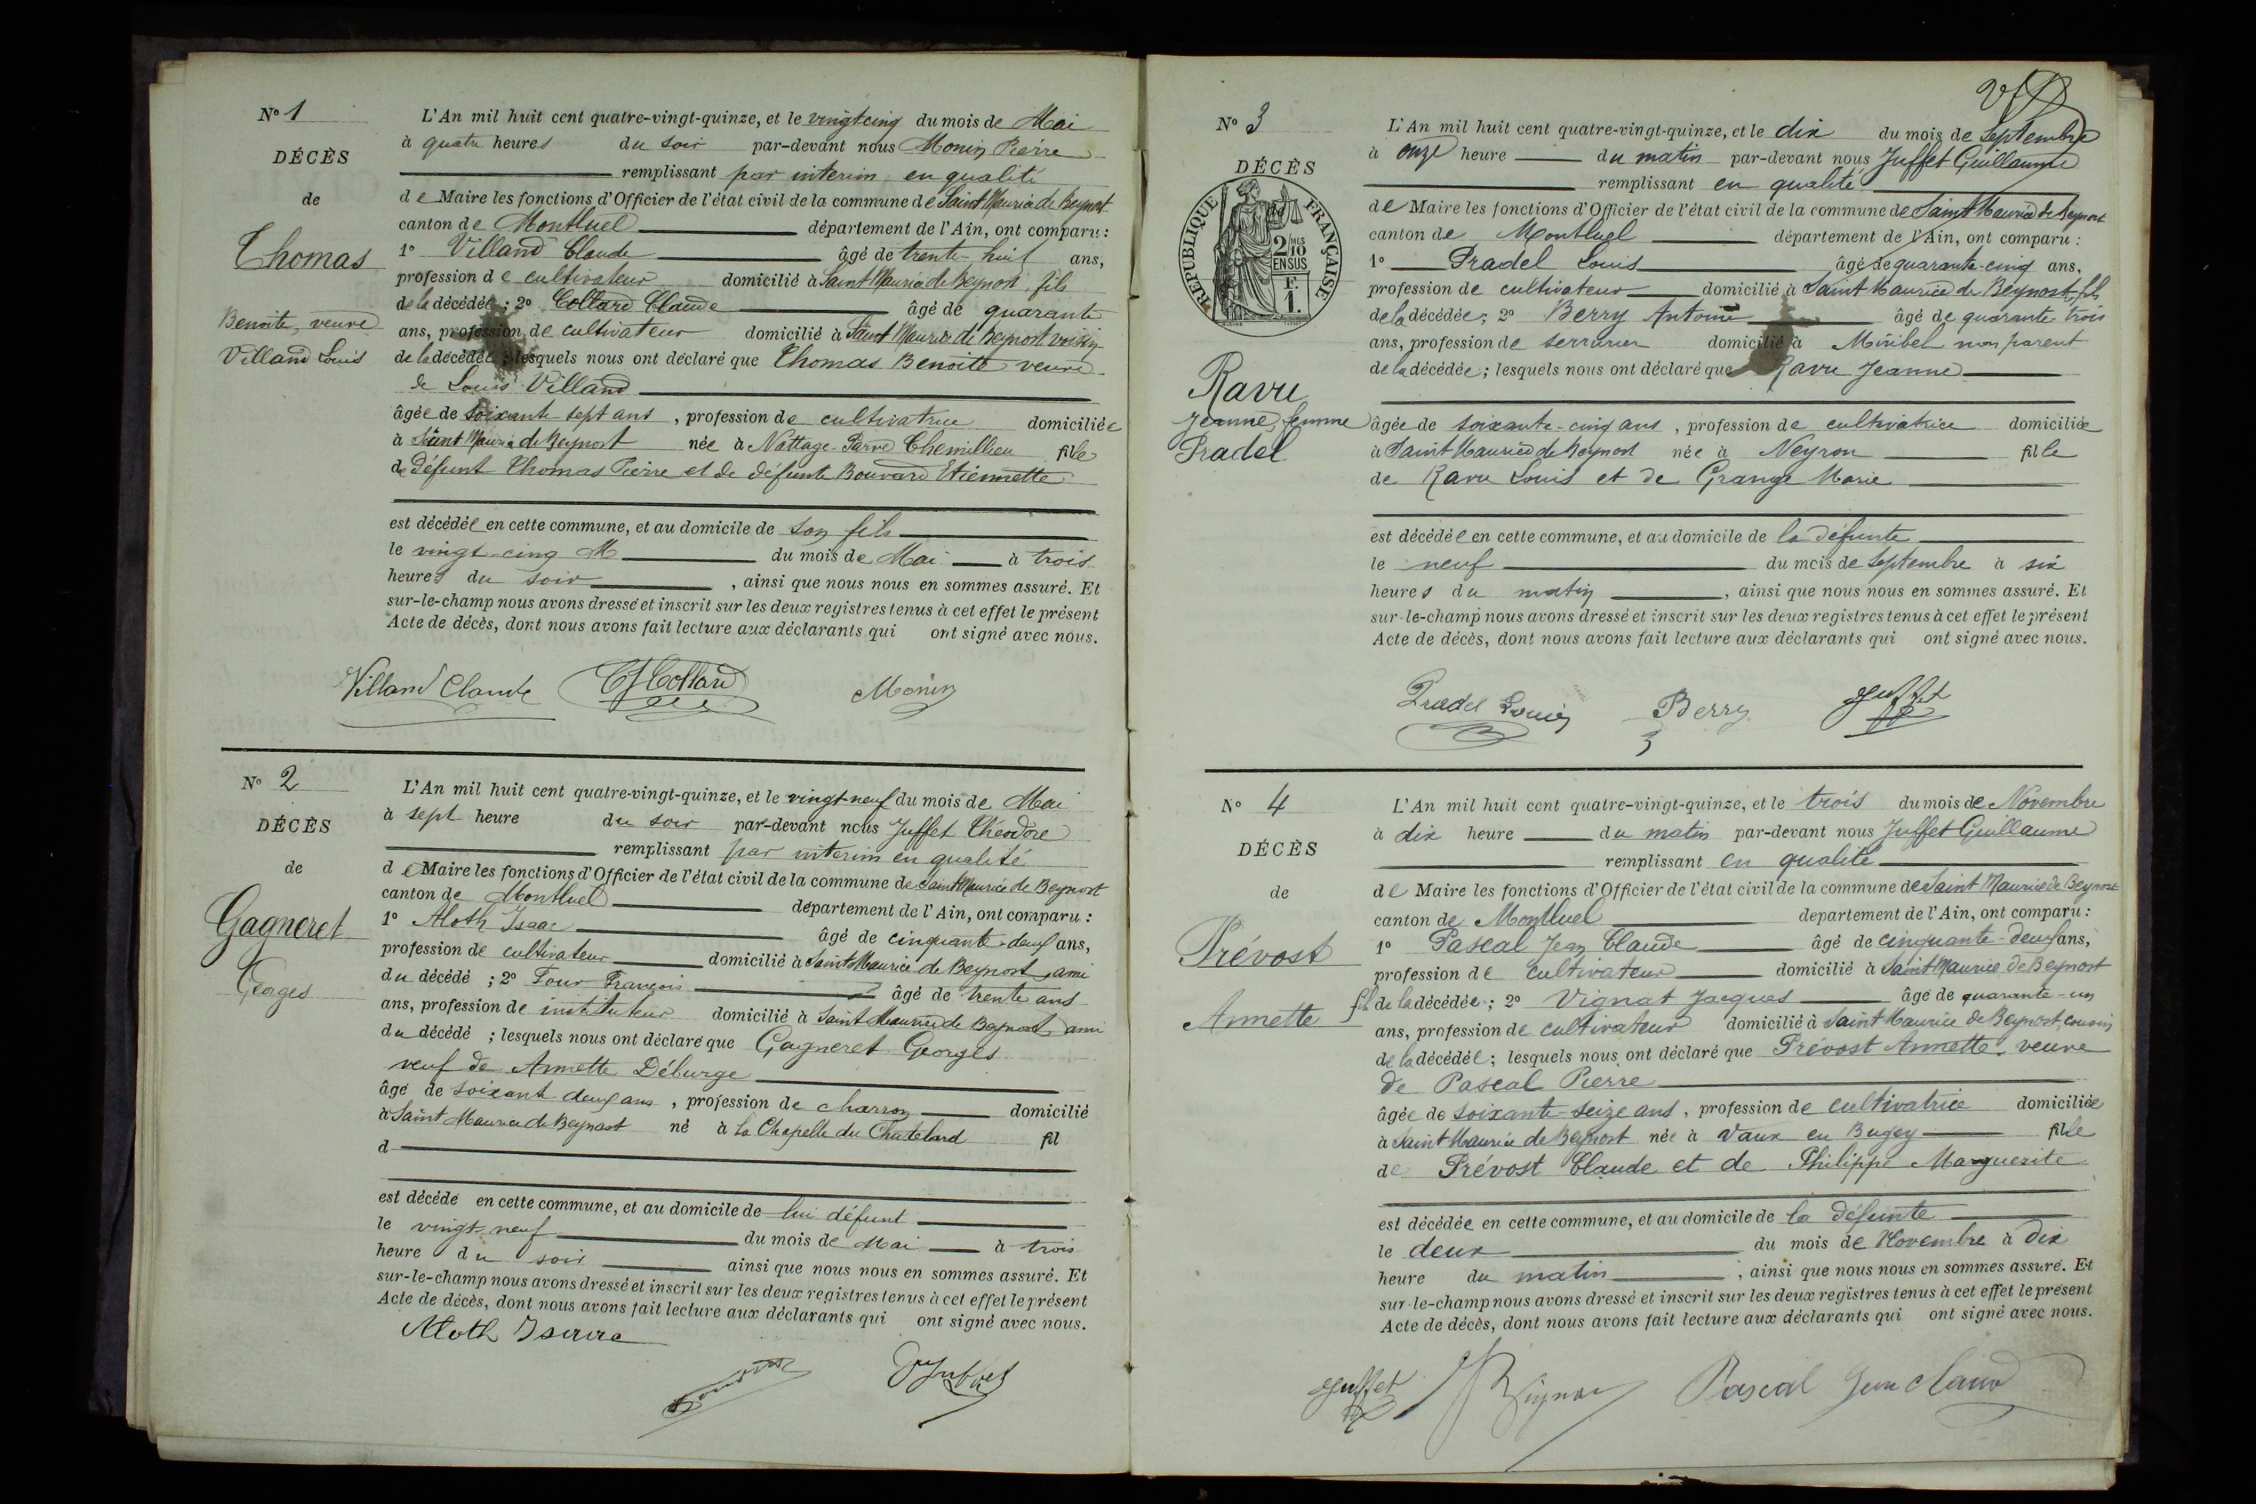 No 1
DÉCÈS
de
Thomas
Benoite, veuve
Villand Louis
L'An mil huit cent quatre-vingt-quinze, et le vingt cinq du mois de Mai
à quatre heures du soir par-devant nous Monin Pierre
remplissant par interim en qualité
de Maire les fonctions d'Officier de l'état civil de la commune de Saint Maurice de Beynost
canton de Montluel département de l'Ain, ont comparu :
1o Villand Claude âgé de trente-huit ans,
profession de cultivateur domicilié à Saint Maurice de Beynost, fils
de la décédée ; 2o Collard Claude âgé de quarante
ans, profession de cultivateur domicilié à Saint Maurice de Beynost voisin
de la décédée ; lesquels nous ont déclaré que Thomas Benoite veuve
de Louis Villand
âgée de soixante sept ans, profession de cultivatrice domiciliée
à Saint Maurice de Beynost née à Nattage-Parve Chemillieu fille
de défunt Thomas Pierre et de défunte Bouvard Etiennette
est décédée en cette commune, et au domicile de son fils
le vingt-cinq M du mois de Mai à trois
heures du soir, ainsi que nous nous en sommes assuré. Et
sur-le-champ nous avons dressé et inscrit sur les deux registres tenus à cet effet le présent
Acte de décès, dont nous avons fait lecture aux déclarants qui ont signé avec nous.
Villand Claude Collard Monin
No 2
DÉCÈS
de
Gagneret
Georges
L'An mil huit cent quatre-vingt-quinze, et le vingt neuf du mois de Mai
à sept heure du soir par-devant nous Juffet Théodore
remplissant par interim en qualité
de Maire les fonctions d'Officier de l'état civil de la commune de Saint Maurice de Beynost
canton de Montluel département de l'Ain, ont comparu :
1o Aloth Isaac âgé de cinquante-deux ans,
profession de cultivateur domicilié à Saint Maurice de Beynost, ami
du décédé ; 2o Four François âgé de trente ans
ans, profession de instituteur domicilié à Saint Maurice de Beynost, ami
du décédé ; lesquels nous ont déclaré que Gagneret Georges
veuf de Annette Déburge
âgé de soixant deux ans, profession de charron domicilié
à Saint Maurice de Beynost né à la Chapelle du Chatelard fil
d
est décédé en cette commune, et au domicile de lui défunt
le vingt-neuf du mois de Mai à trois
heure du soir ainsi que nous nous en sommes assuré. Et
sur-le-champ nous avons dressé et inscrit sur les deux registres tenus à cet effet le présent
Acte de décès, dont nous avons fait lecture aux déclarants qui ont signé avec nous.
Aloth Juffet
No 3
DÉCÈS
de
RÉPUBLIQUE FRANÇAISE
2/10 MES
EN SUS
F.
1.
Ravu
Jeanne, femme
Pradel
L'An mil huit cent quatre-vingt-quinze, et le dix du mois de Septembre
à onze heure du matin par-devant nous Juffet Guillaume
remplissant en qualité
de Maire les fonctions d'Officier de l'état civil de la commune de Saint Maurice de Beynost
canton de Montluel département de l'Ain, ont comparu :
1o Pradel Louis âgé de quarante-cinq ans,
profession de cultivateur domicilié à Saint Maurice de Beynost, fils
de la décédée ; 2o Berry Antoine âgé de quarante trois
ans, profession de serrurier domicilié à Miribel non parent
de la décédée ; lesquels nous ont déclaré que Ravu Jeanne
âgée de soixante-cinq ans, profession de cultivatrice domiciliée
à Saint Maurice de Beynost née à Neyron fille
de Ravu Louis et de Grange Marie
est décédée en cette commune, et au domicile de la défunte
le neuf du mois de Septembre à six
heures du matin, ainsi que nous nous en sommes assuré. Et
sur-le-champ nous avons dressé et inscrit sur les deux registres tenus à cet effet le présent
Acte de décès, dont nous avons fait lecture aux déclarants qui ont signé avec nous.
Pradel Louis Berry Juffet
No 4
DÉCÈS
de
Prévost
Annette
L'An mil huit cent quatre-vingt-quinze, et le trois du mois de Novembre
à dix heure du matin par-devant nous Juffet Guillaume
remplissant en qualité
de Maire les fonctions d'Officier de l'état civil de la commune de Saint Maurice de Beynost
canton de Montluel département de l'Ain, ont comparu :
1o Pascal Jean Claude âgé de cinquante-deux ans,
profession de cultivateur domicilié à Saint Maurice de Beynost
fils de la décédée ; 2o Vignat Jacques âgé de quarante-un
ans, profession de cultivateur domicilié à Saint Maurice de Beynost, cousin
de la décédée ; lesquels nous ont déclaré que Prévost Annette, veuve
de Pascal Pierre
âgée de soixante-seize ans, profession de cultivatrice domiciliée
à Saint Maurice de Beynost née à Vaux en Bugey fille
de Prévost Claude et de Philippe Marguerite
est décédée en cette commune, et au domicile de la défunte
le deux du mois de Novembre à dix
heure du matin, ainsi que nous nous en sommes assuré. Et
sur-le-champ nous avons dressé et inscrit sur les deux registres tenus à cet effet le présent
Acte de décès, dont nous avons fait lecture aux déclarants qui ont signé avec nous.
Juffet Vignat Pascal Jean Claud